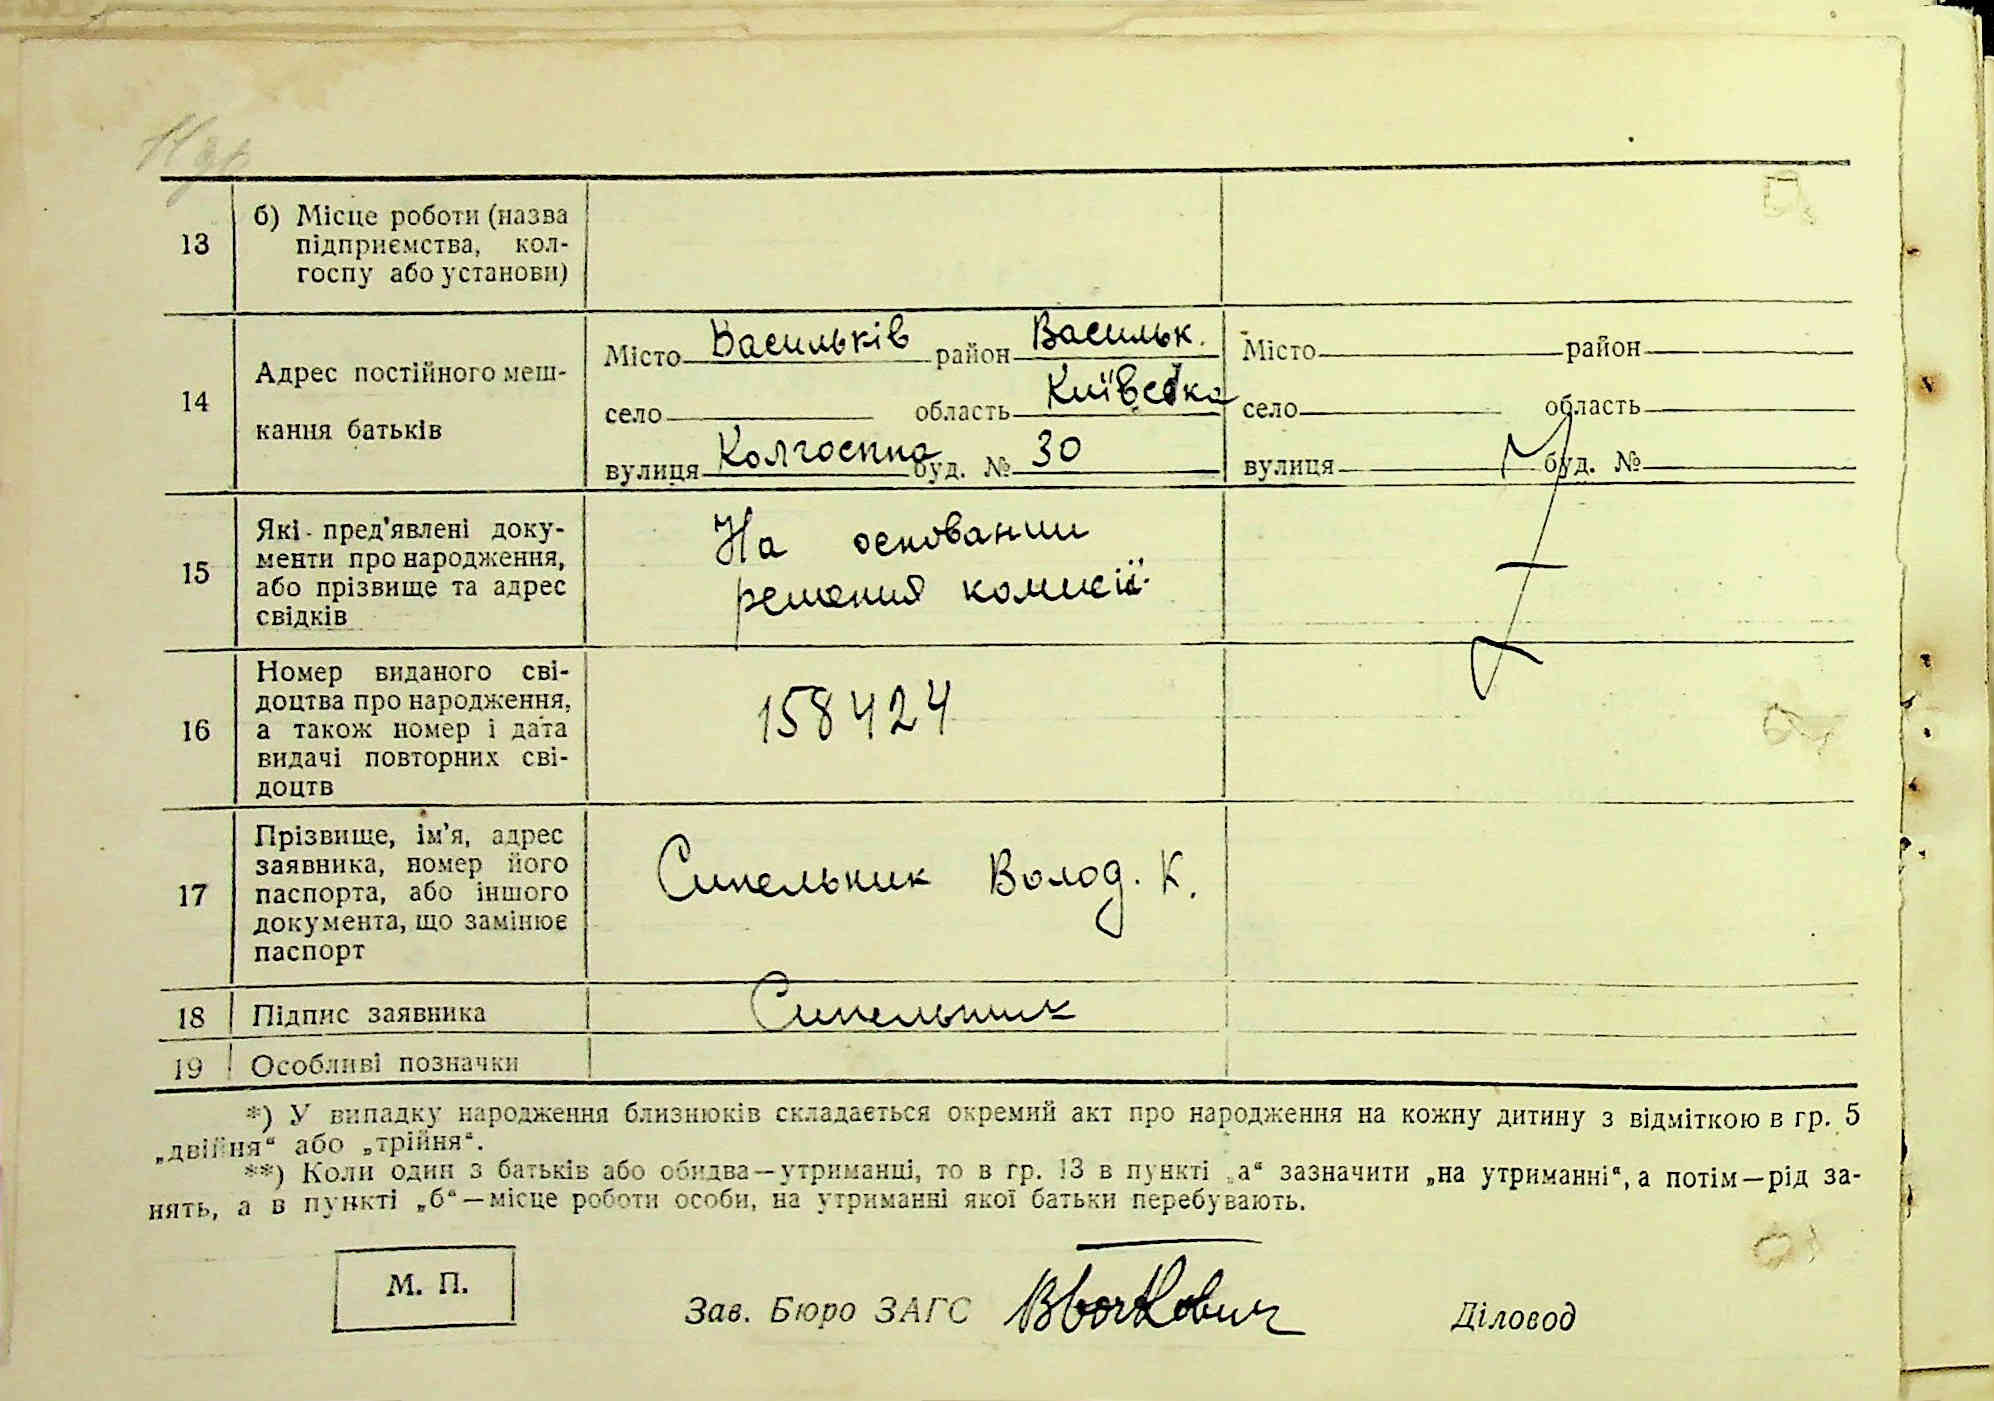 13
б) Місце роботи (назва
підприємства, кол-
госпу або установи)
14
Адрес постійного меш-
кання батьків
Місто Васильків район Васильк.
село область Київська
вулиця Колгоспна буд. № 30
Місто район
село область
вулиця буд. №
15
Які пред'явлені доку-
менти про народження,
або прізвище та адрес
свідків
На основании
решения комисіі
16
Номер виданого сві-
доцтва про народження,
а також номер і дата
видачі повторних сві-
доцтв
158424
17
Прізвище, ім'я, адрес
заявника, номер його
паспорта, або іншого
документа, що замінює
паспорт
Синельник Волод. К.
18
Підпис заявника
Синельник
19
Особливі позначки
*) У випадку народження близнюків складається окремий акт про народження на кожну дитину з відміткою в гр. 5
„двійня“ або „трійня“.
**) Коли один з батьків або обидва—утриманці, то в гр. 13 в пункті „а“ зазначити „на утриманні“, а потім—рід за-
нять, а в пункті „б“—місце роботи особи, на утриманні якої батьки перебувають.
М. П.
Зав. Бюро ЗАГС
Діловод